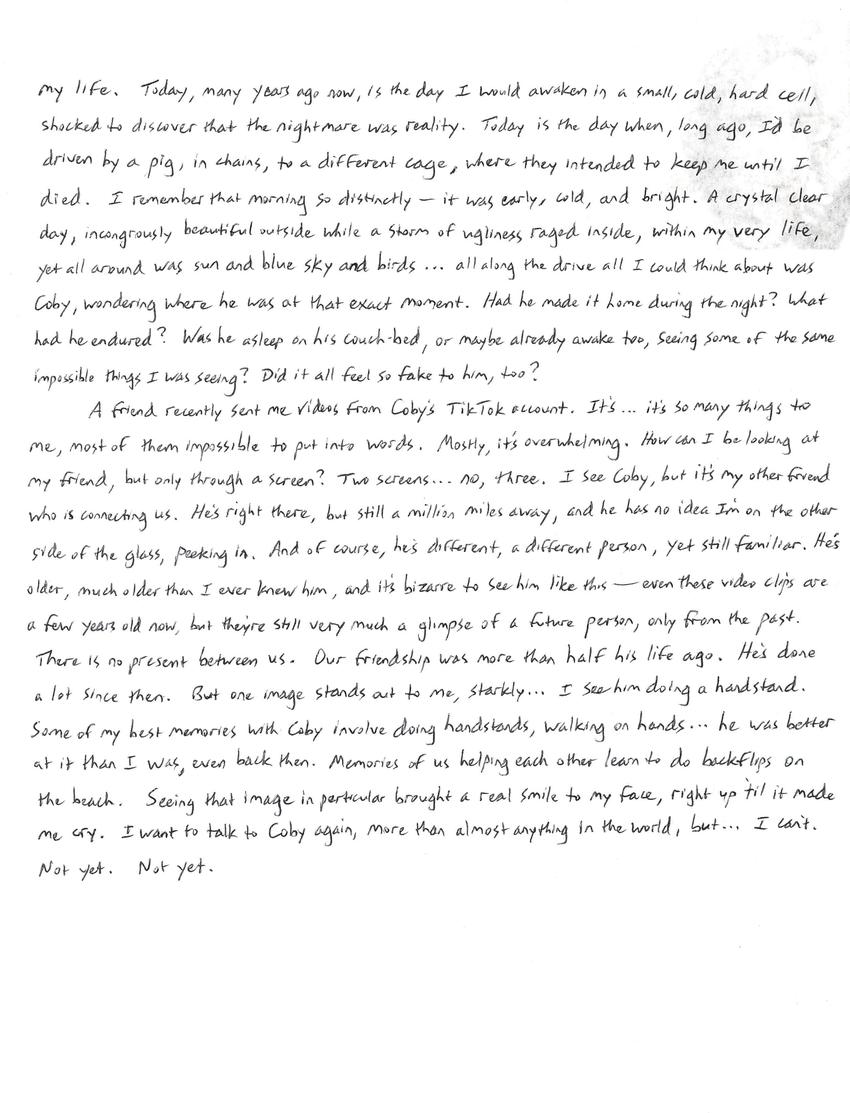 my life. Today, many years ago now, is the day I would awaken in a small, cold, hard cell,
shocked to discover that the nightmare was reality. Today is the day when, long ago, I'd be
driven by a pig, in chains, to a different cage, where they intended to keep me until I
died. I remember that morning so distinctly — it was early, cold, and bright. A crystal clear
day, incongrously beautiful outside while a storm of ugliness raged inside, within my very life,
yet all around was sun and blue sky and birds ... all along the drive all I could think about was
Coby, wondering where he was at that exact moment. Had he made it home during the night? What
had he endured? Was he asleep on his couch-bed, or maybe already awake too, seeing some of the same
impossible things I was seeing? Did it all feel so fake to him, too?
A friend recently sent me videos from Coby's TikTok account. It's... it's so many things to
me, most of them impossible to put into words. Mostly, it's overwhelming. How can I be looking at
my friend, but only through a screen? Two screens... no, three. I see Coby, but it's my other friend
who is connecting us. He's right there, but still a million miles away, and he has no idea I'm on the other
side of the glass, peeking in. And of course, he's different, a different person, yet still familiar. He's
older, much older than I ever knew him, and it's bizarre to see him like this — even these video clips are
a few years old now, but they're still very much a glimpse of a future person, only from the past.
There is no present between us. Our friendship was more than half his life ago. He's done
a lot since then. But one image stands out to me, starkly... I see him doing a handstand.
Some of my best memories with Coby involve doing handstands, walking on hands... he was better
at it than I was, even back then. Memories of us helping each other learn to do backflips on
the beach. Seeing that image in particular brought a real smile to my face, right up 'til it made
me cry. I want to talk to Coby again, more than almost anything in the world, but... I can't.
Not yet. Not yet.